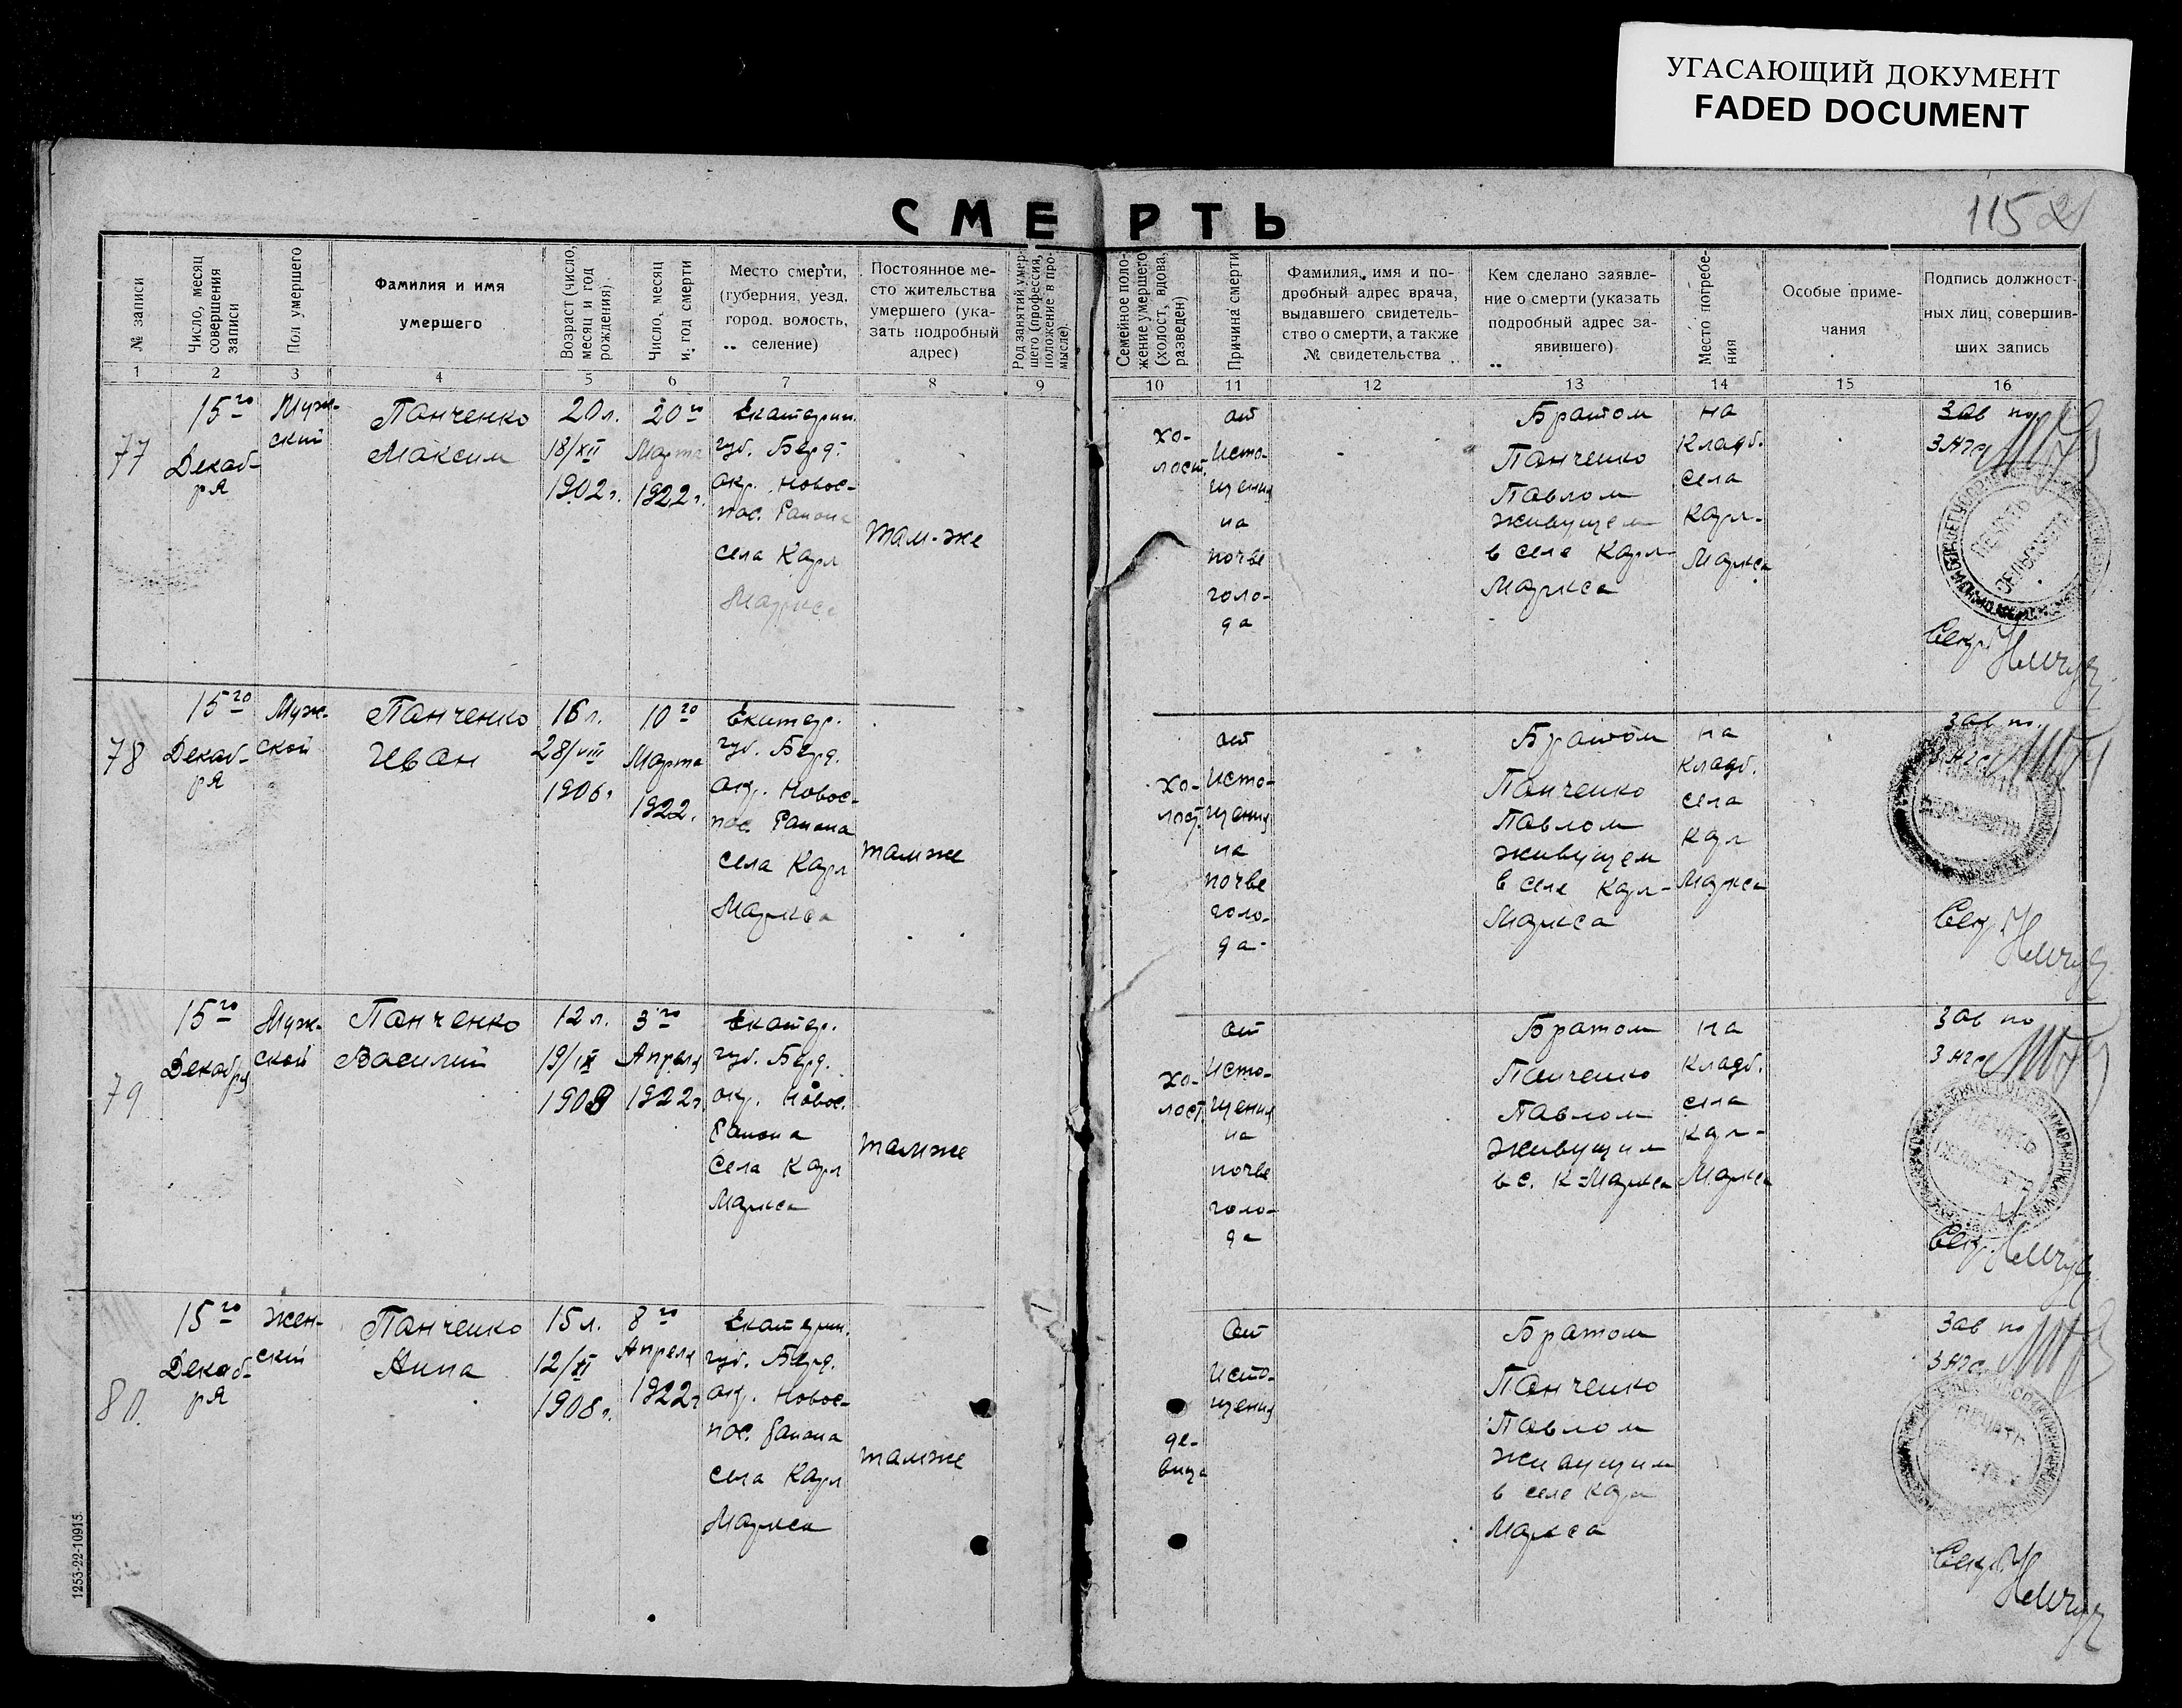 УГАСАЮЩИЙ ДОКУМЕНТ
FADED DOCUMENT
115
СМЕРТЬ
№ записи
Число, месяц
совершения
записи
Пол умершего
Фамилия и имя
умершего
Возраст (число,
месяц и год
рождения)
Число, месяц
и год смерти
Место смерти,
(губерния, уезд,
город, волость,
селение)
Постоянное ме-
сто жительства
умершего (ука-
зать подробный
адрес)
Род занятий умер-
шего (профессия,
положение в про-
мысле).
Семейное поло-
жение умершего
(холост, вдова,
разведен)
Причина смерти
Фамилия, имя и по-
дробный адрес врача,
выдавшего свидетель-
ство о смерти, а также
№ свидетельства
Кем сделано заявле-
ние о смерти (указать
подробный адрес за-
явившего)
Место погребе-
ния
Особые приме-
чания
Подпись должност-
ных лиц, совершив-
ших запись
1 2 3 4 5 6 7 8 9 10 11 12 13 14 15 16
77
15го
Декаб-
ря
Муж-
ский
Панченко
Максим
20 л.
18/XII
1902 г.
20го
Марта
1922 г.
Екатерин.
губ. Берд.
окр. Новос-
пас. Района
села Карл
Маркса
там-же
хо-
лост.
от
исто-
щения
на
почве
голо-
да
Братом
Панченко
Павлом
живущем
в селе Карл-
Маркса
на
Кладб.
села
Карл-
Маркса
Зав по
ЗАГС
ПЕЧАТЬ
СЕЛЬСОВЕТА
Секр.
78
15го
Декаб-
ря
Муж-
ской
Панченко
Иван
16 л.
28/VIII
1906 г
10го
Марта
1922.
Екатер.
губ. Берд.
окр. Новос-
пас. Района
села Карл
Маркса
тамже
хо-
лост.
от
исто-
щения
на
почве
голо-
да-
Братом
Панченко
Павлом
живущем
в селе Карл-
Маркса
на
Кладб.
села
Карл
Маркса
Зав по.
Секр.
79
15го
Декабря
Муж-
ской
Панченко
Василий
12 л.
19/IX
1909
3го
Апреля
1922 г.
Екатер.
губ. Берд.
окр. Новос.
Района
Села Карл
Маркса
тамже
хо-
лост.
от
исто-
щения
на
почве
голо-
да
Братом
Панченко
Павлом
живущим
в с. К-Маркса
на
Кладб.
села
Карл-
Маркса
Зав по
ЗАГС
ПЕЧАТЬ
Секр.
80.
15го
Декаб-
ря
Жен-
ский
Панченко
Анна
15 л.
12/XI
1908 г.
8го
Апреля
1922 г
Екатерин.
губ. Берд.
окр. Новос-
пас. Района
села Карл
Маркса
тамже
де-
вица
От
исто-
щения
Братом
Панченко
Павлом
живущим
в селе Карл
Маркса
Зав по
ЗАГС
ПЕЧАТЬ
Секр.
1253-22-10915